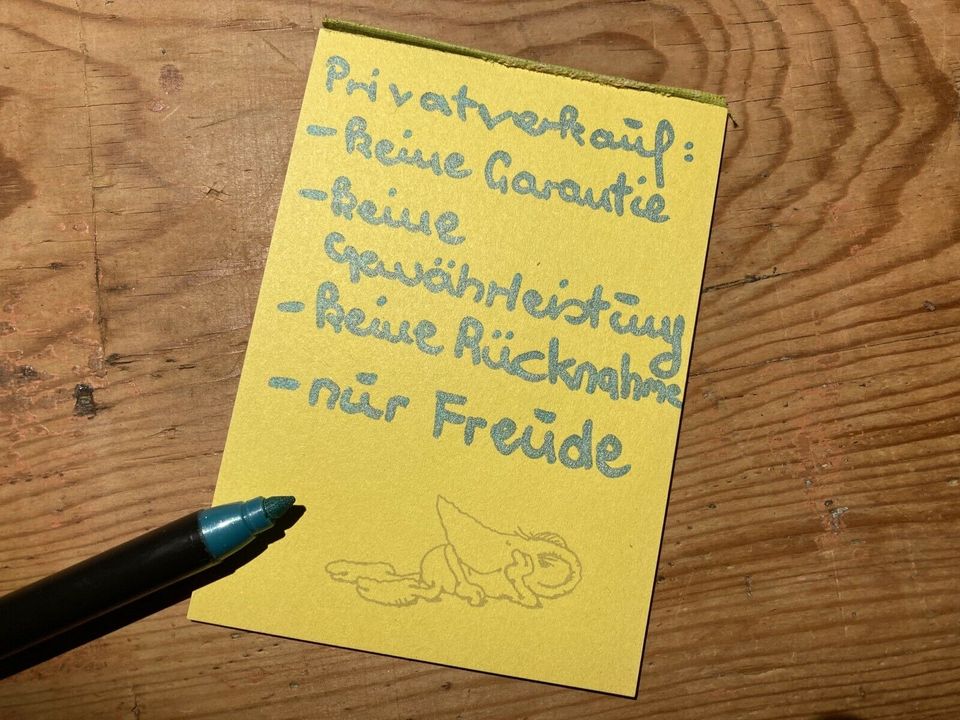 Privatverkauf:
- keine Garantie
- keine
Gewährleistung
- keine Rücknahme
- nur Freude